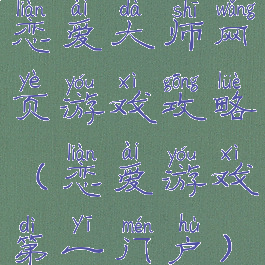 liàn ài dà shī wǎng
恋爱大师网
yè yóu xì gōng lüè
页游戏攻略
liàn ài yóu xì
（恋爱游戏
dì yī mén hù
第一门户）